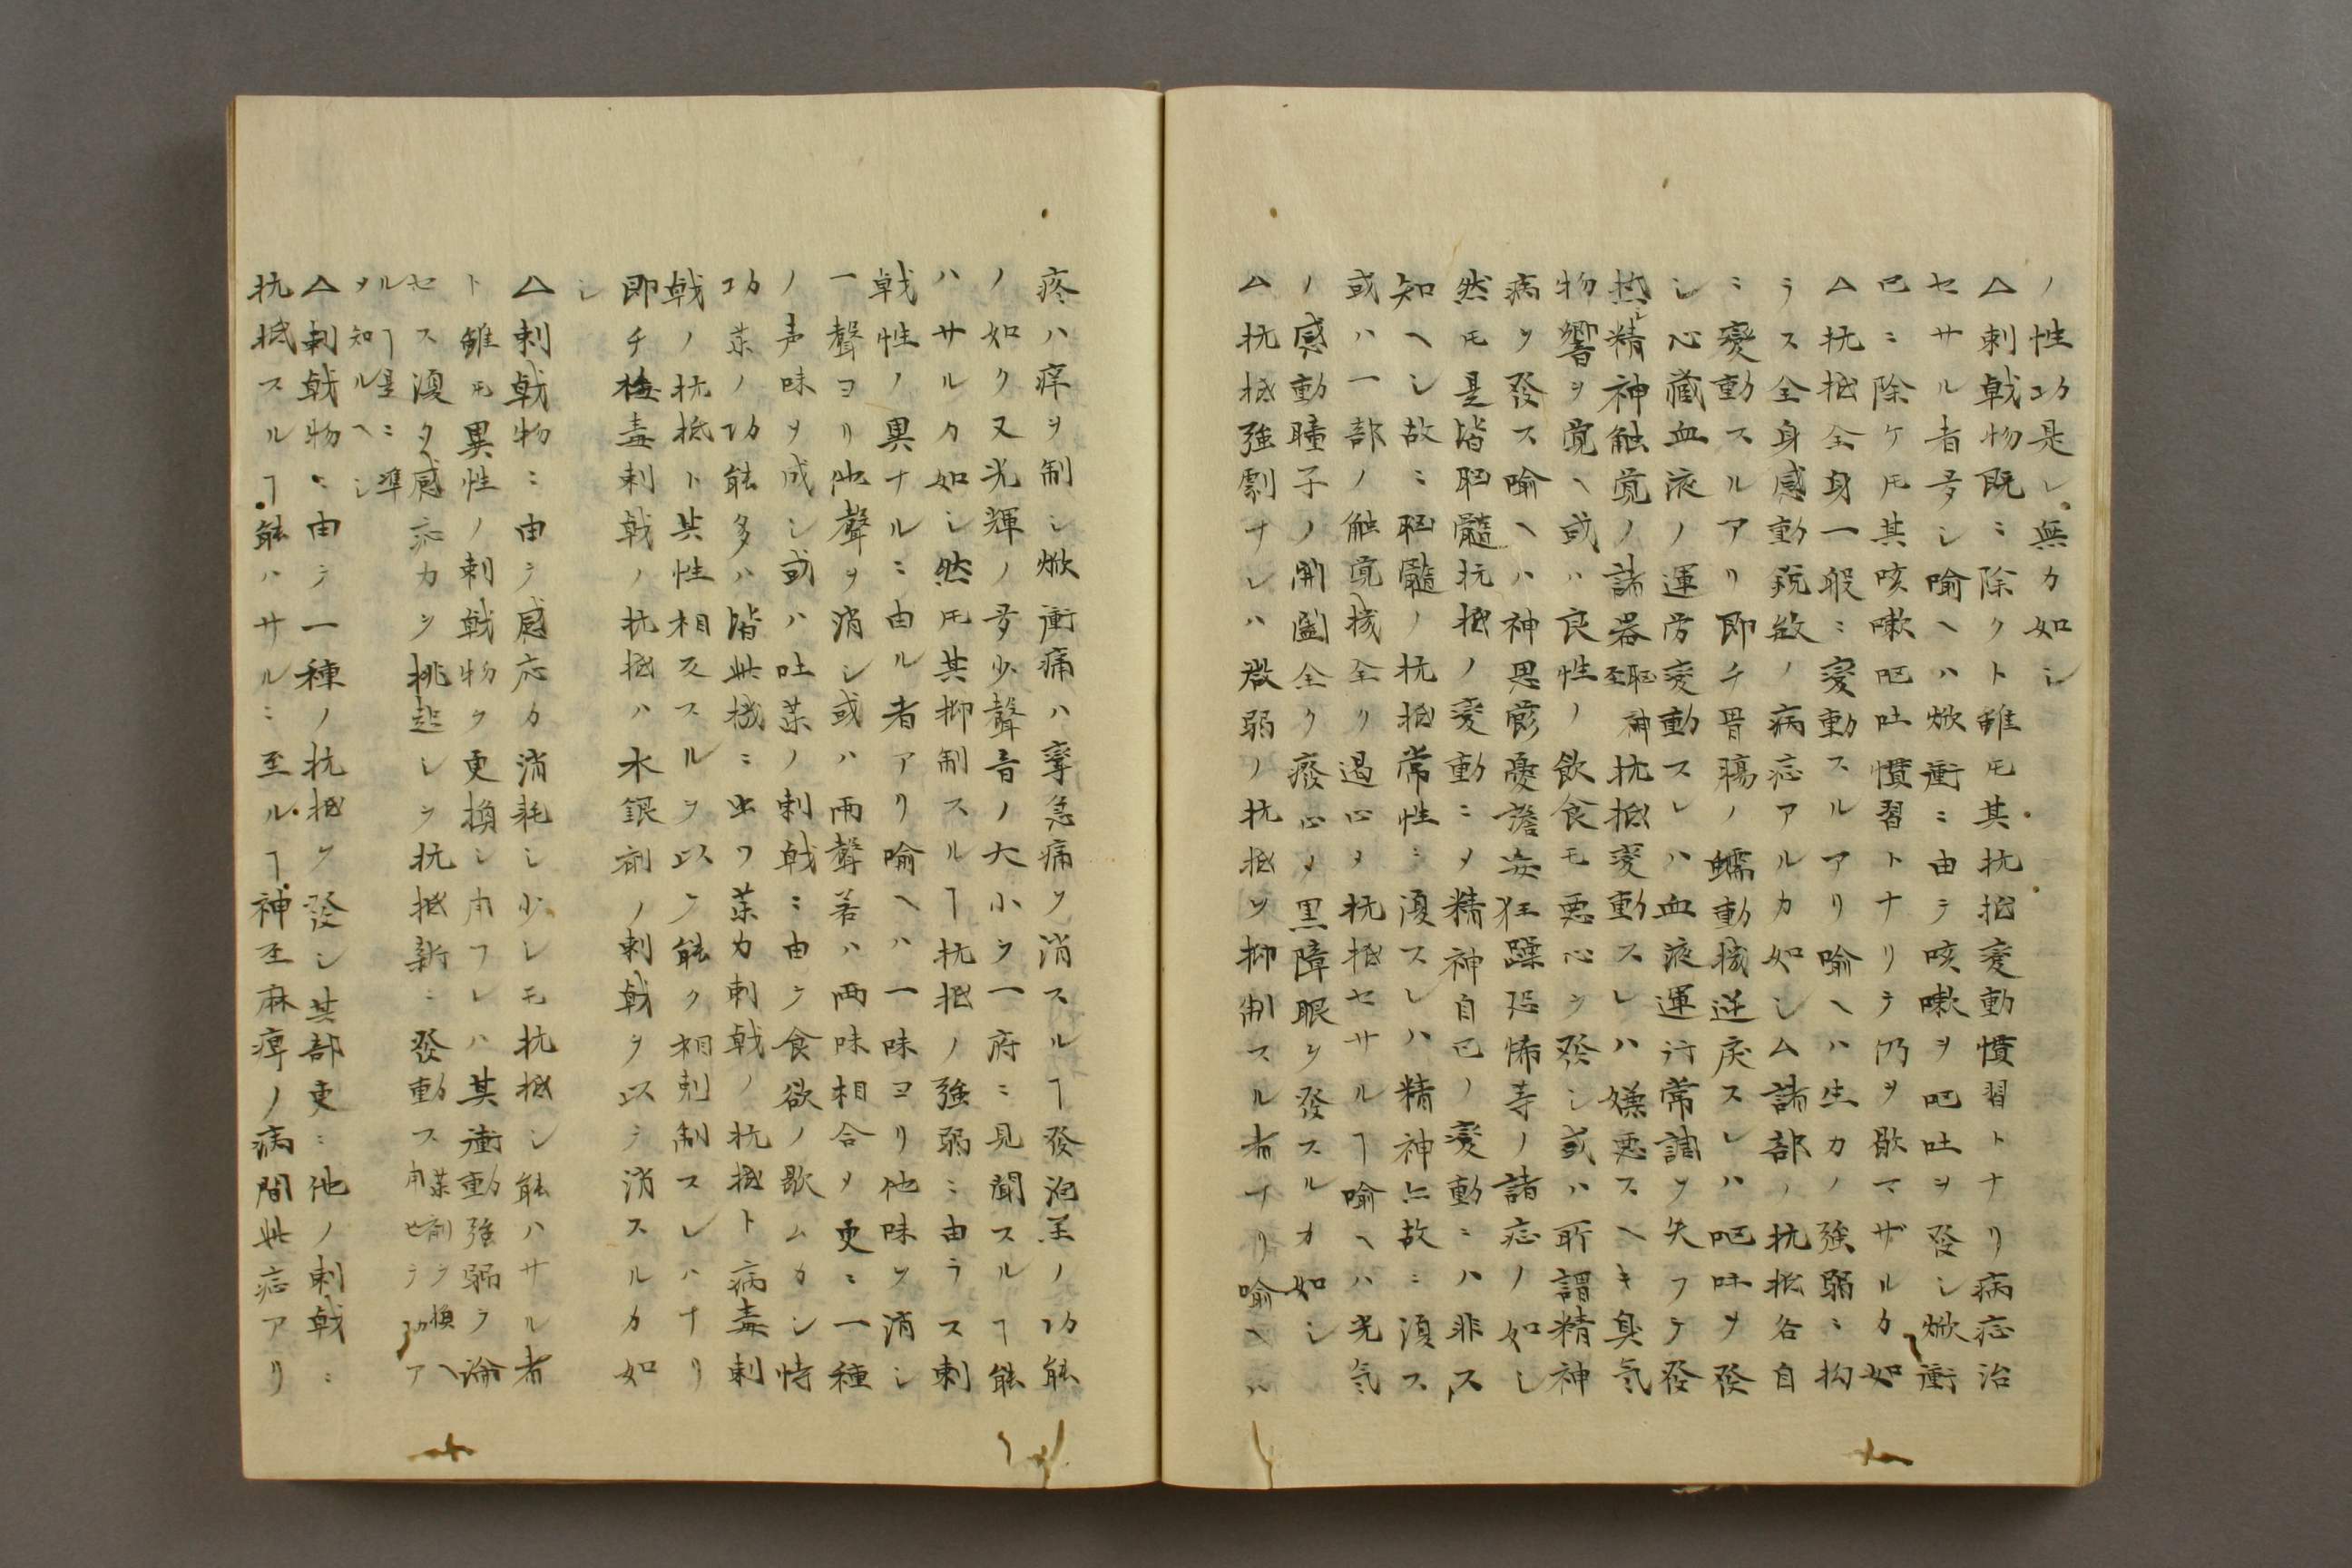 ノ性功是レ無カ如シ
△刺戟物既ニ除クト雖𪜈其抗抵変動慣習トナリ病症治
セサル者多シ喩ヘハ焮衝ニ由テ咳嗽ヲ吐ヲ發シ焮衝
已ニ除ケ𪜈其咳嗽吐慣習トナリテ仍ヲ歇マザルカ如
△抗抵全身一般ニ変動スルアリ喩ヘハ生力ノ強弱ニ拘
ラス全身感動鋭敏ノ病症アルカ如シム諸部ノ抗抵各自
ニ変動スルアリ即チ胃腸ノ蠕動機逆戻スレハ吐ヲ發
シ心藏血液ノ運労変動スレハ血液運行常調ヲ失フテ發
精神触覚ノ諸器神抗抵変動スレハ嫌悪スヘキ臭気
物響ヲ覚ヘ或ハ良性ノ飲食モ悪心ヲ発シ或ハ所謂精神
病ヲ發ス喩ヘハ神思憂譫妄狂躁恐怖等ノ諸症ノ如シ
然𪜈是皆髓抗抵ノ変動ニメ精神自已ノ変動ニハ非ス
知ヘシ故ニ髓ノ抗抵常性ニ復スレハ精神亦故ニ復ス
或ハ一部ノ触覚機全ク過心メ抗抵セサルヿ喩ヘハ光気
ノ感動瞳子ノ開闔全ク癈心メ黒障眼ヲ發スルカ如シ
ム抗抵強劇ナレハ微弱ノ抗抵ヲ抑制スル者ナリ喩ヘハ
疼ハ痒ヲ制シ焮衝痛ハ攣急痛ヲ消スルヿ發泡ノ功能
ノ如ク又光輝ノ多少聲音ノ大小ヲ一府ニ見聞スルヿ能
ハサルカ如シ然𪜈其抑制スルヿ抗抵ノ強弱ニ由ラス刺
戟性ノ異ナルニ由ル者アリ喩ヘハ一味ヨリ他味ヲ消シ
一聲ヨリ他聲ヲ消シ或ハ両聲若ハ両味相合メ更ニ一種
ノ声味ヲ成シ或ハ吐薬ノ刺戟ニ由テ食欲ノ歇ムカシ
功薬ノ功能多ハ皆此機ニ出ツ薬力刺戟ノ抗抵ト病毒刺
戟ノ抗抵ト其性相反スルヲ以テ能ク相剋制スレハナリ
即チ梅毒刺戟ノ抗抵ハ水銀剤ノ刺戟ヲ以テ消スルカ如
シ
△刺戟物ニ由テ感応力消耗シ少シモ抗抵シ能ハサル者
ト雖𪜈異性ノ刺戟物ヲ更換シ用フレハ其衝動強弱ヲ論
セス復タ感応力ヲ挑起シテ抗抵新ニ發動ス薬剤ヲ換ヘ用セテ功ア
ルヿ是ニ準
ヲ知ルヘシ
△刺戟物ニ由テ一種ノ抗抵ヲ發シ其部更ニ他ノ刺戟ニ
抗抵スルヿ能ハサルニ至ルヿ神至麻痺ノ病間此症アリ